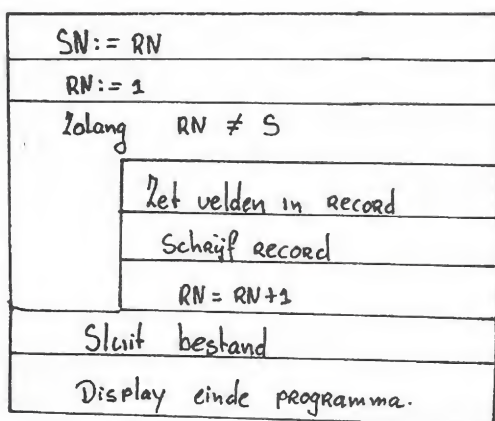 SN:= RN
RN:= 1
Zolang RN ≠ S
Zet velden in Record
Schrijf Record
RN = RN+1
Sluit bestand
Display einde programma.